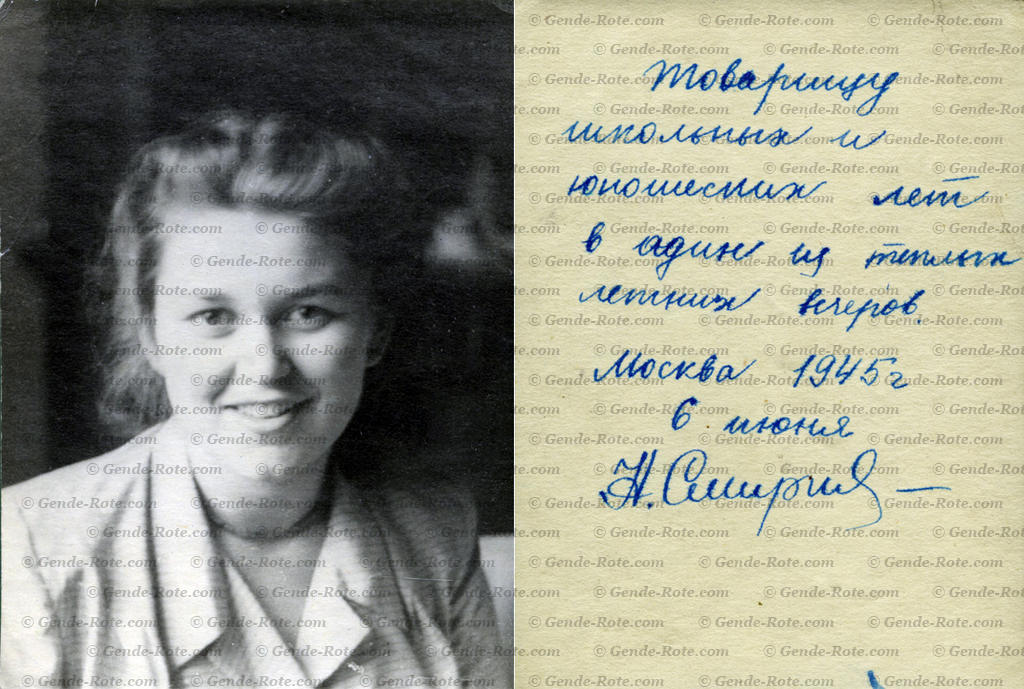 Товарищу
школьных и
юношеских лет
в один из теплых
летних вечеров.
Москва 1945г
6 июня
Н. Смирнов
© Gende-Rote.com